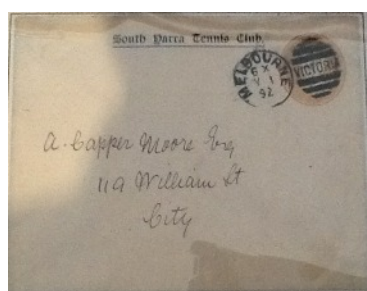 South Yarra Tennis Club.
MELBOURNE
6 X
1
92
VICTORIA
A. Capper Moore Esq
119 William St
City